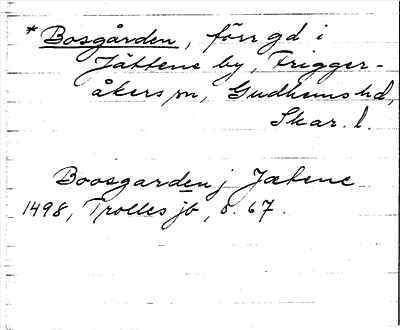 * Bosgården, förr gd i
Jättene by, Frigger-
åkers sn, Gudhems hd,
Skar. l.
Boosgarden j Jætene
1498, Trolles jb, s. 67.